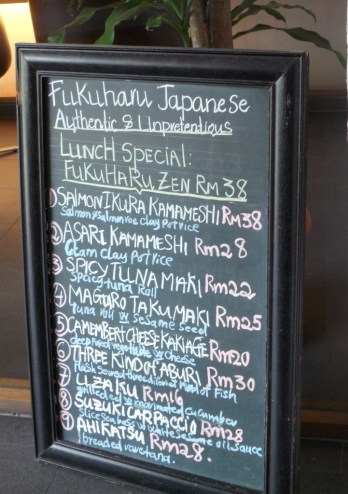 Fukuharu Japanese
Authentic & Unpretentious
LUNCH SPECIAL:
FUKUHARU ZEN RM 38
1 SALMON IKURA KAMAMESHI RM38
Salmon & Salmon roe clay pot rice
2 ASARI KAMAMESHI RM28
Clam clay pot rice
3 SPICY TUNA MAKI RM22
Spicy tuna Roll
4 MAGURO TAKUMAKI RM25
tuna roll w sesame seed
5 CAMEMBERT CHEESE KAKIAGE RM20
deep fried vegetable w cheese
6 THREE KIND OF ABURI RM30
Flash Seared three kind of Fish
7 UZAKU RM16
grilled eel w marinated cucumber
8 SUZUKI CARPACCIO RM28
Slice Sea bass w white Sesame oil sauce
9 AHIKATSU RM28.
breaded